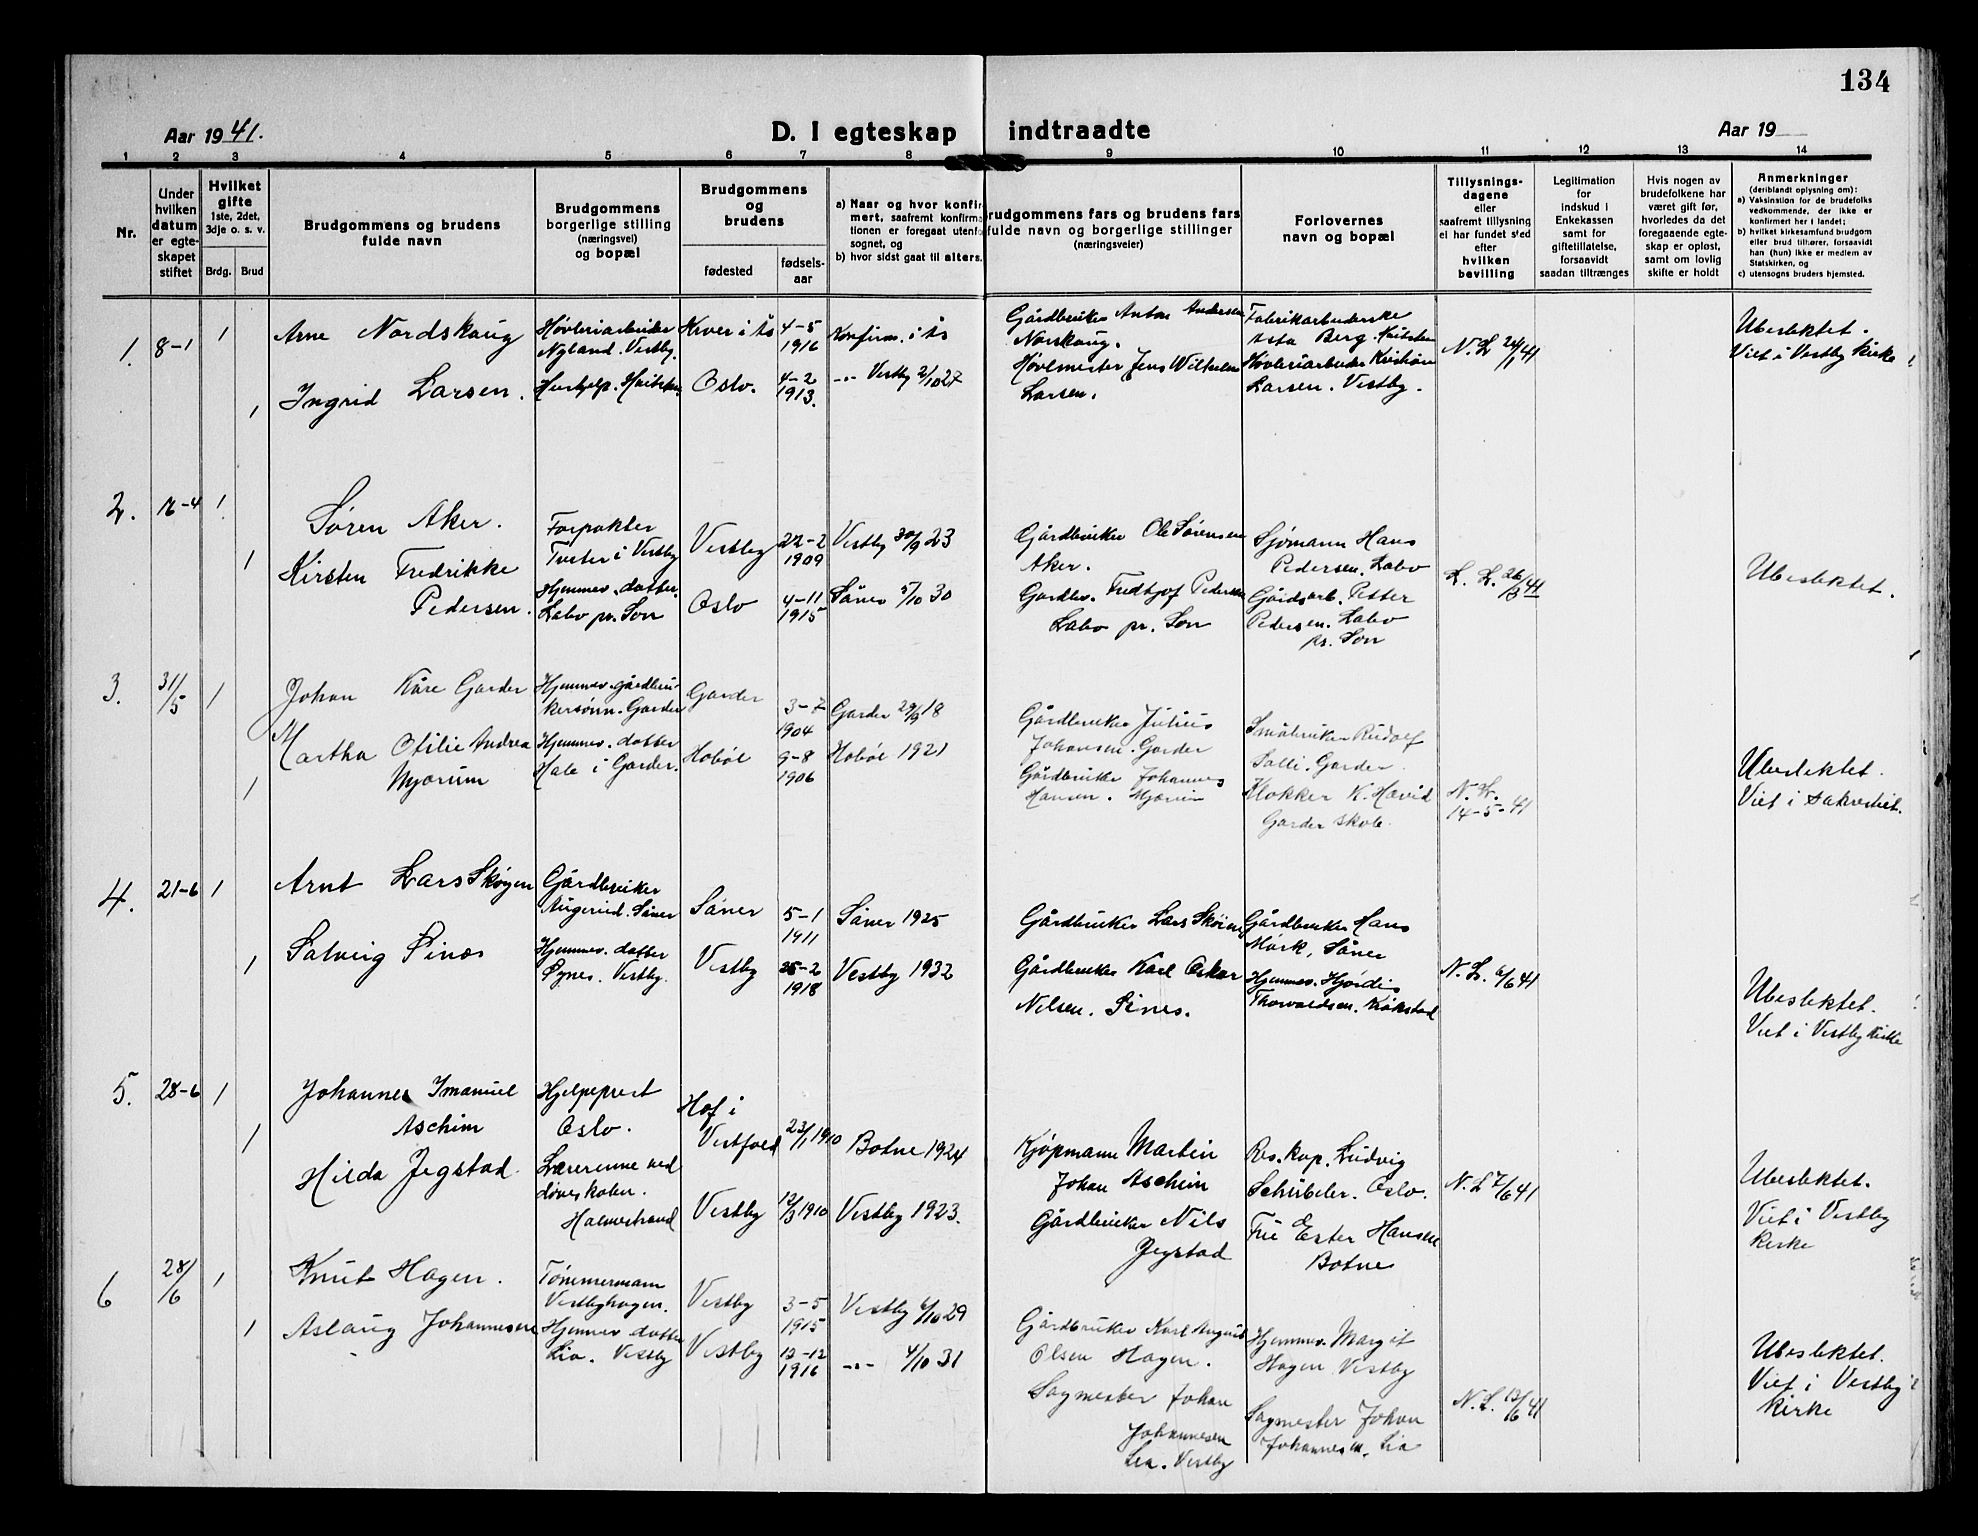 134
Aar 1941.
D. I egteskap indtraadte
Aar 19
1 2 3 4 5 6 7 8 9 10 11 12 13 14
Nr.
Under
hvilken
datum
er egte-
skapet
stiftet
Hvilket
gifte
1ste, 2det,
3dje o. s. v.
Brdg. Brud
Brudgommens og brudens
fulde navn
Brudgommens
borgerlige stilling
(næringsvei)
og bopæl
Brudgommens
og
brudens
fødested
fødsels-
aar
a) Naar og hvor konfir-
mert, saafremt konfirma-
tionen er foregaat utenfor
sognet, og
b) hvor sidst gaat til alters.
Brudgommens fars og brudens fars
fulde navn og borgerlige stillinger
(næringsveier)
Forlovernes
navn og bopæl
Tillysnings-
dagene
eller
saafremt tillysning
ei har fundet sted
efter
hvilken
bevilling
Legitimation
for
indskud i
Enkekassen
samt for
giftetilladelse,
forsaavidt
saadan tiltrænges
Hvis nogen av
brudefolkene har
været gift før,
hvorledes da det
foregaaende egte-
skap er opløst,
samt om lovlig
skifte er holdt
Anmerkninger
(deriblandt oplysning om):
a) Vaksination for de brudefolks
vedkommende, der ikke er
konfirmert her i landet;
b) hvilket kirkesamfund brudgom
eller brud tilhører, forsaavidt
han (hun) ikke er medlem av
Statskirken, og
c) utensogns bruders hjemsted.
1. 8-1 1
Arne Nordskaug
Høvleriarbeider
Nyland. Vestby.
Kroer i Ås
4-5
1916
Konfirm. i Ås
Gårdbruker Anton Andersen
Norskaug.
Fabrikarbeiderske
Berg.
N.L. 24/1 41
Ubeslektet.
Viet i Vestby kirke
1
Ingrid Larsen.
Hushjelp.
Oslo.
4-2
1913.
-"- Vestby 2/10 27
Høvlmester Jens Wilhelm
Larsen.
Høvleriarbeider Kristian
Larsen. Vestby.
2. 16-4 1
Søren Aker.
Forpakter
Tveter i Vestby
Vestby
22-2
1909
Vestby 30/9 23
Gårdbruker Ole Sørensen
Aker.
Sjømann Hans
Pedersen. Labo
L. L. 26/3 41
Ubeslektet.
1
Kirsten Fredrikke
Pedersen.
Hjemmev. datter.
Labo pr. Son
Oslo
4-11
1915
Såner 5/10 30
Gardbr. Fredtjof Pedersen
Labo pr. Son
Gårdsarb. Petter
Pedersen. Labo
pr. Son
3. 31/5 1
Johan Kåre Garder
Hjemmev. gårdbru-
kersønn. Garder
Garder
3-7
1904
Garder 29/9 18
Gårdbruker Julius
Johansen. Garder
Småbruker Rudolf
Solli. Garder.
N. K.
14-5-41
Ubeslektet.
Viet i sakrestiet.
1
Martha Otilie Andrea
Mjærum
Hjemmev. datter
Hale i Garder.
Hobøl
9-8
1906
Hobøl 1921
Gårdbruker Johannes
Hansen. Mjærum
Klokker K. Hævid
Garder skole.
4. 21-6 1
Arnt Lars Skøyen
Gårdbruker
Augerud. Såner
Såner
5-1
1911
Såner 1925
Gårdbruker Lars Skøien
Gårdbruker Hans
Mørk, Såner
N.L. 6/6 41
Ubeslektet.
Viet i Vestby kirke
1
Solveig Sines
Hjemmev. datter
Synes. Vestby.
Vestby
25-2
1918
Vestby 1932
Gårdbruker Karl Oskar
Nilsen. Sines.
Hjemmev. Hjørdis
Thorvaldsen. Krokstad
5. 28-6 1
Johannes Imanuel
Aschim
Hjelpeprest
Oslo.
Hof i
Vestfold
23/1 1910
Botne 1924
Kjøpmann Martin
Johan Aschim
Res. kap. Ludvig
Schübeler. Oslo.
N.L. 7/6 41
Ubeslektet.
Viet i Vestby
kirke
1
Hilda Jegstad
Lærerinne ved
døveskolen.
Holmestrand
Vestby
12/3 1910
Vestby 1923.
Gårdbruker Nils
Jegstad
Fru Ester Hansen
Botne
6 28/6 1
Knut Hagen.
Tømmermann
Vestbyhagen.
Vestby
3-5
1915
Vestby 6/10 29
Gårdbruker Karl August
Olsen Hagen.
Hjemmev. Margit
Hagen Vestby
N.L. 13/6 41
Ubeslektet.
Viet i Vestby
kirke
1
Aslaug Johannesen
Hjemmev datter
Lia. Vestby
Vestby
12-12
1916
-"- 4/10 31
Sagmester Johan
Johannesen
Lia. Vestby
Sagmester Johan
Johannesen, Lia